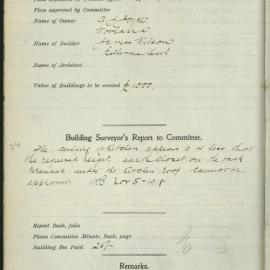 Plan approved by Committee
Name of Owner
Name of Builder James Wilson
Name of Architect
Value of Buildings to be erected £ 1000.
Building Surveyor's Report to Committee.
The ceiling of kitchen appears to be less than
the required height, earth closet on the back
under the kitchen roof cannot be
approved. Nov 5-1918
Report Book, folio
Plans Committee Minute Book, page
Building Fee Paid 20/-
Remarks.